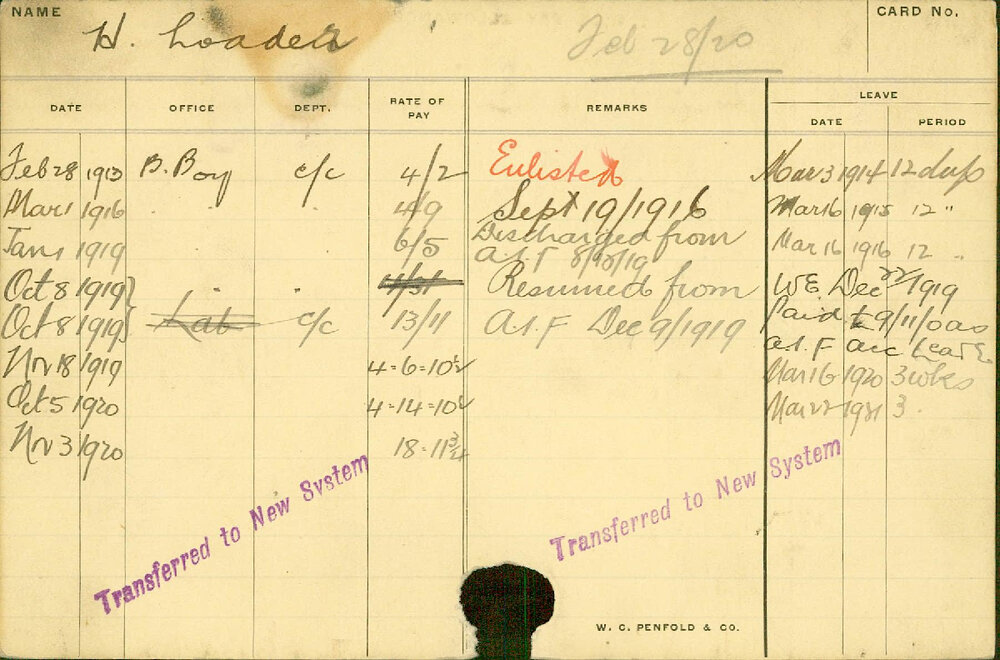 NAME
CARD No.
H. Loader
Feb 28/20
DATE OFFICE DEPT. RATE OF PAY REMARKS LEAVE
DATE PERIOD
Feb 28 1913 B. Boy c/c 4/2 Enlisted Mar 3 1914 12 days
Mar 1 1916 " " 4/9 Sept 19/1916 Mar 16 1915 12 "
Jan 1 1919 " " 6/5 Discharged from Mar 16 1916 12 "
A.I.F
Oct 8 1919 " " Resumed from WE Dec 22/1919
Oct 8 1919 Lab c/c 13/11 A.I.F Dec 9/1919 Paid £9/11/0 as
A.I.F acc
Nov 18 1919 4=6=10½ Mar 16 1920 3 wks
Oct 5 1920 4=14=10½ Mar 22 1921 3
Nov 3 1920 18=11¾
Transferred to New System
Transferred to New System
W. C. PENFOLD & CO.